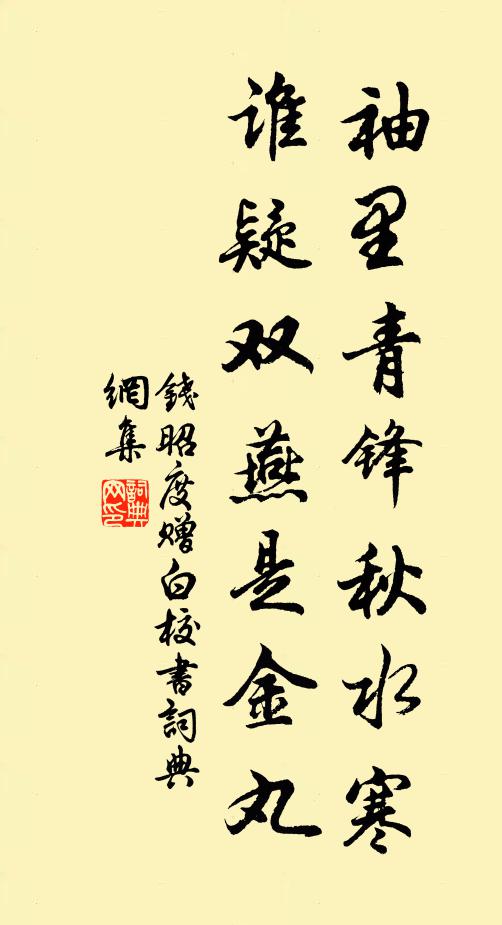 袖里青锋秋水寒
谁疑双燕是金丸
錢昭度赠白校書詞典
網集
詞典
网印